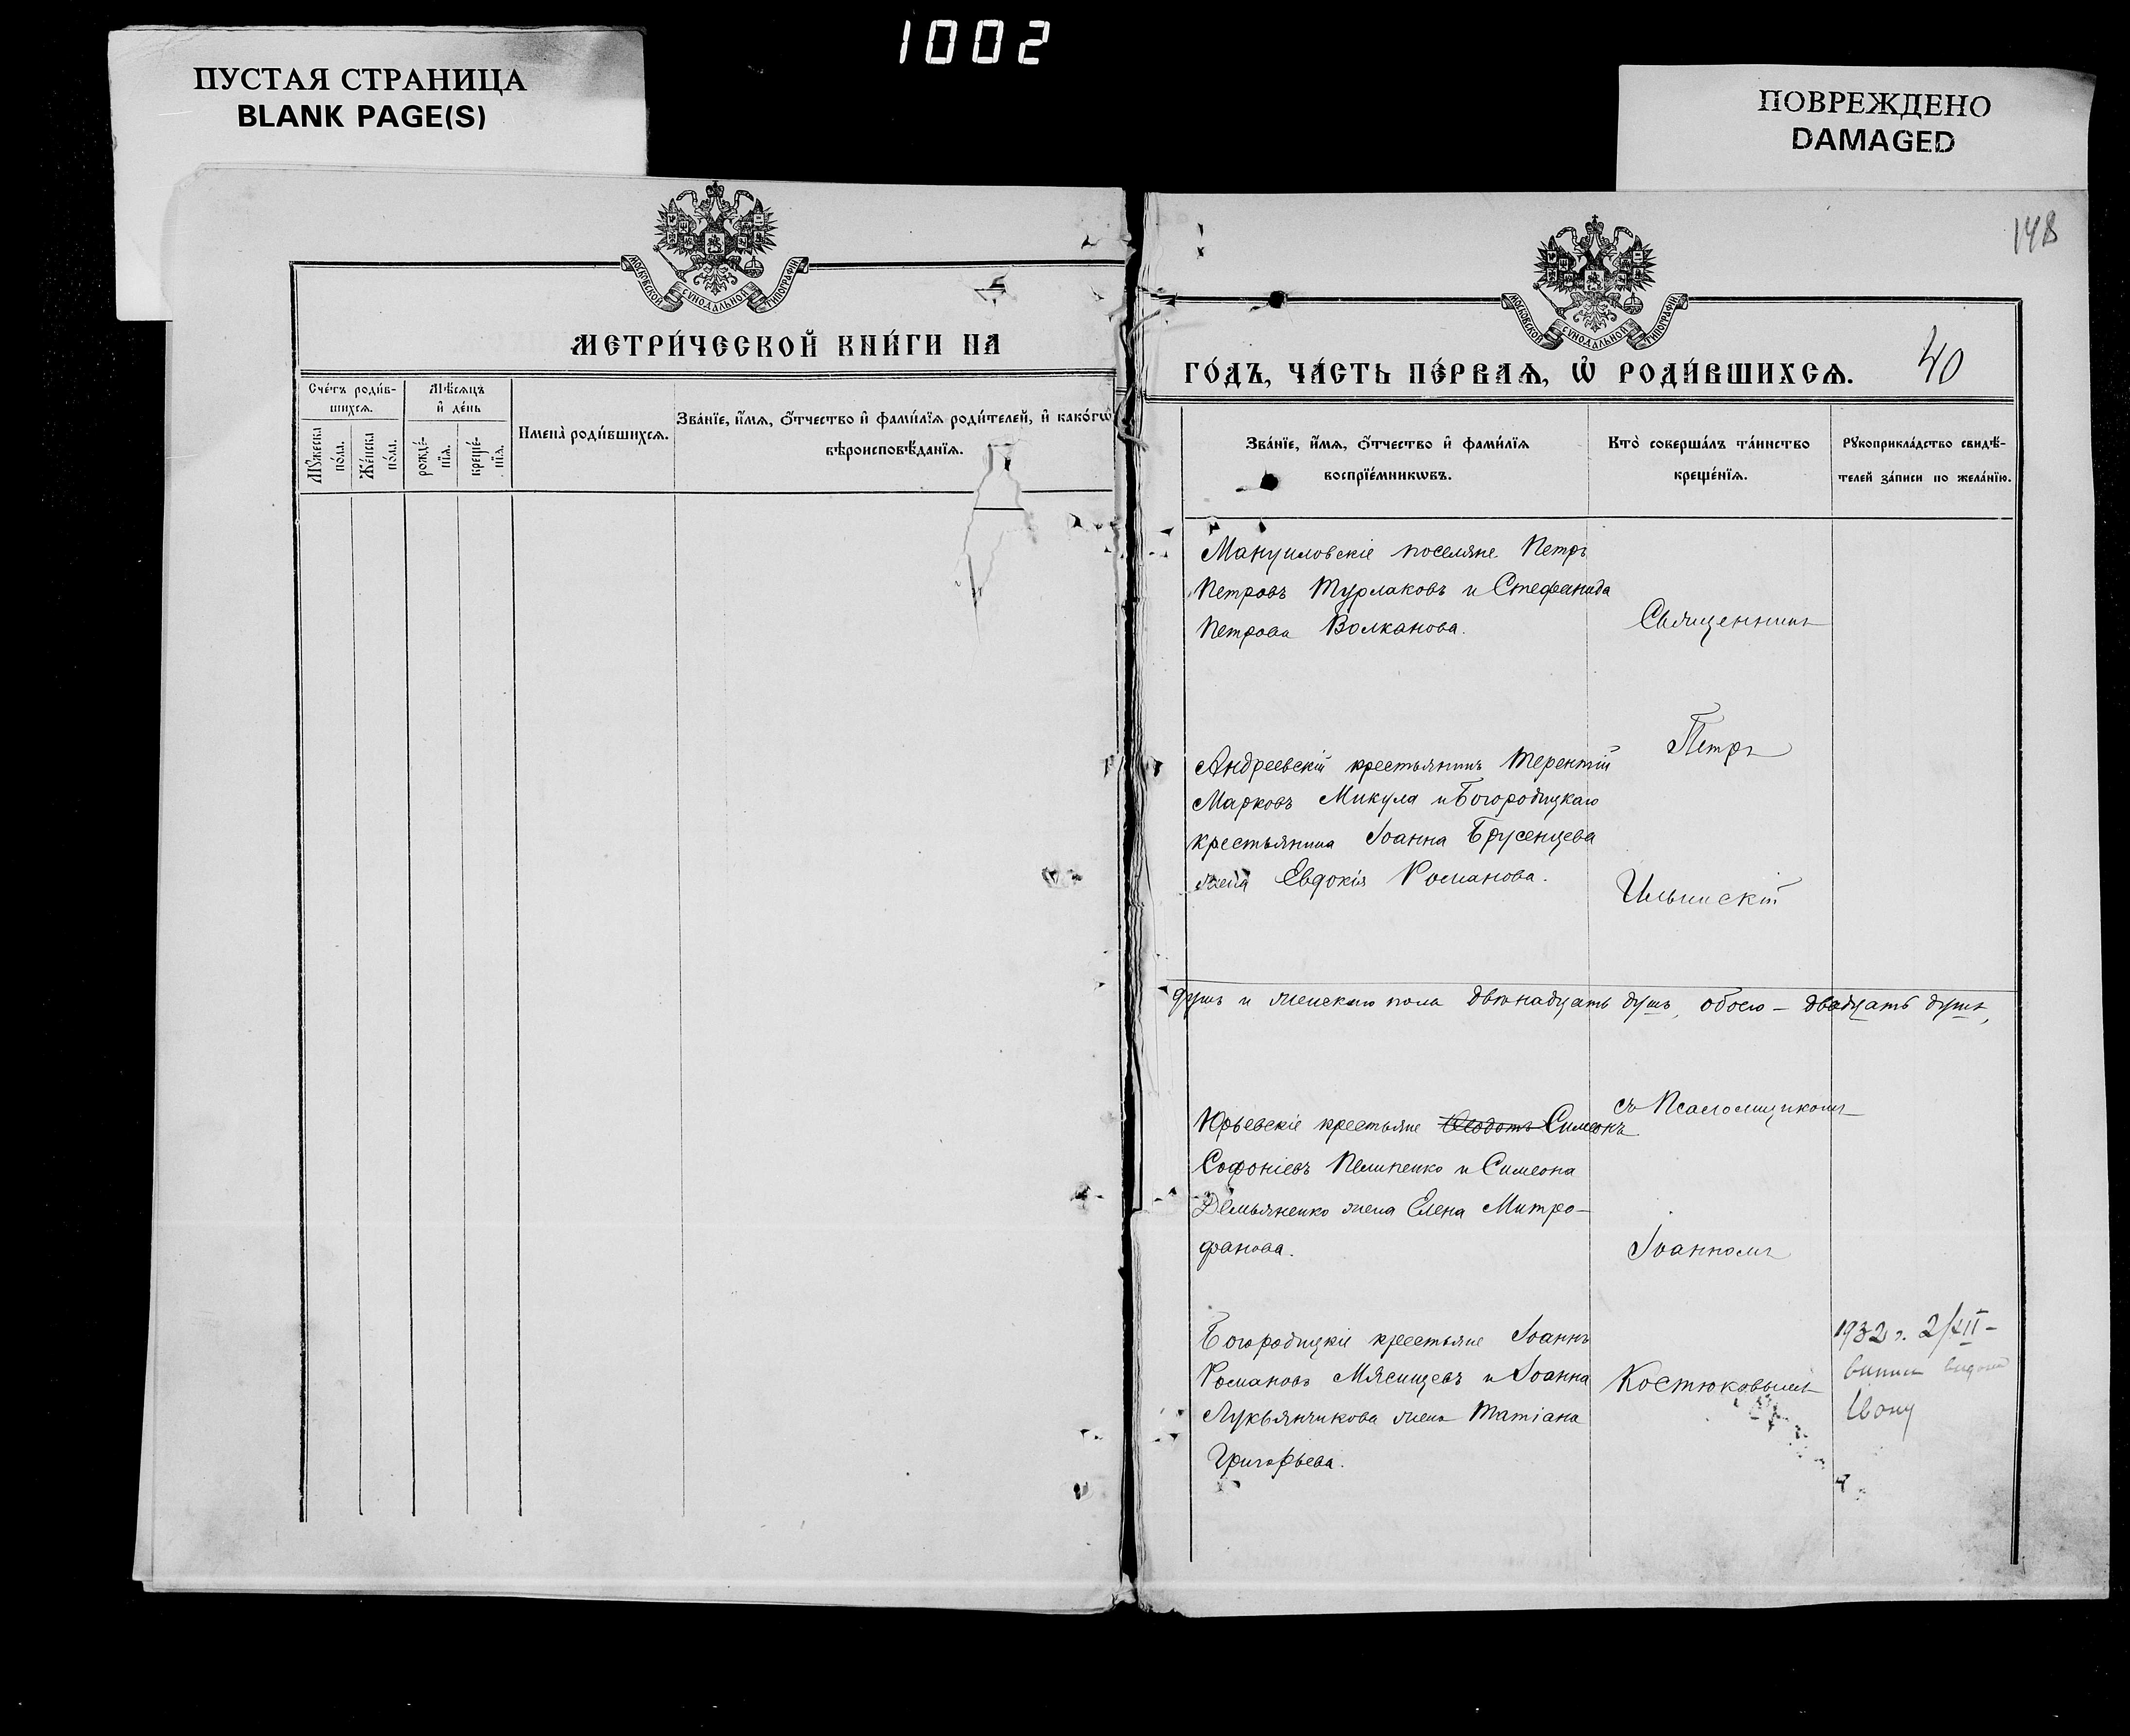 1002
ПУСТАЯ СТРАНИЦА
BLANK PAGE(S)
ПОВРЕЖДЕНО
DAMAGED
МОСКОВСКОЙ СѴНОДАЛЬНОЙ ТИПОГРАФІИ
МЕТРИ́ЧЕСКОЙ КНИ́ГИ НА
Сче́тъ роди́в-
шихсѧ.
Мѣ́сѧцъ
и҆ де́нь
Мꙋ́жеска
по́ла.
Же́нска
по́ла.
рожде́-
нїѧ.
креще́-
нїѧ.
Имена̀ роди́вшихсѧ.
Зва́нїе, и҆́мѧ, ѻ҆́тчество и҆ фами́лїѧ роди́телей, и҆ како́гѡ
вѣроисповѣ́данїѧ.
148
МОСКОВСКОЙ СѴНОДАЛЬНОЙ ТИПОГРАФІИ
ГО́ДЪ, ЧА́СТЬ ПЕ́РВАѦ, Ѡ҆ РОДИ́ВШИХСѦ.
40
Зва́нїе, и҆́мѧ, ѻ҆́тчество и҆ фами́лїѧ
воспрїе́мникѡвъ.
Кто̀ соверша́лъ та́инство
креще́нїѧ.
Рꙋкоприкла́дство свидѣ́-
телей за́писи по жела́нїю.
Мануиловскіе поселяне Петръ
Петровъ Турлаковъ и Стефанида
Петрова Волканова.
Священникъ
Петръ
Андреевскій крестьянинъ Терентій
Марковъ Микула и Богородицкаго
крестьянина Іоанна Брусенцева
жена Евдокія Романова.
Ильинскій
душъ и женскаго пола двѣнадцать душъ, обоего – двадцать душъ,
съ Псаломщикомъ
Юрьевскіе крестьяне Ѳеодотъ Симеонъ
Софоніевъ Пилипенко и Симеона
Демьяненко жена Елена Митро-
фанова.
Іоанномъ
Богородицкіе крестьяне Іоаннъ
Романовъ Мясищевъ и Іоанна
Лукьянчикова жена Татіана
Григорьева.
Костюковымъ
1932 г. 2/XII –